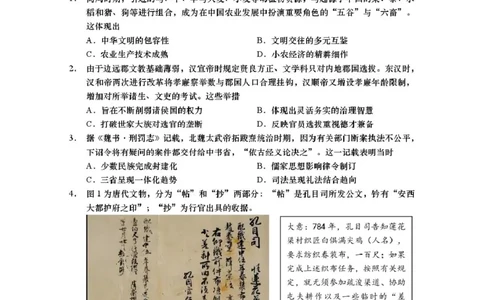 稻和猪、狗等进行组合，成为在中国农业发展中扮演重要角色的“五谷”与“六畜”。
这体现出
A．中华文明的包容性 B．文明交往的多元互鉴
C．农业生产技术成熟 D．小农经济的精耕细作
2． 由于边远郡文教基础薄弱，汉宣帝时规定贤良方正、文学科只对内地郡国选拔。东汉时，
汉和帝两次进行改革将孝廉察举数与郡国人口合理挂钩，汉顺帝又增设孝廉年龄限制，
增加对所举诸生、文吏的考试。这些举措
A．旨在不断削弱诸侯国的权力 B．体现出灵活务实的治理智慧
C．打破世家大族对选官的垄断 D．反映官员选拔重视德才兼备
3． 据《魏书·刑罚志》记载，北魏太武帝拓跋焘统治时期，因为有关部门断案执法不公平，
下诏令将有疑问的案件都交付给中书省，“依古经义论决之”。这一记载表明当时
A．少数民族完成封建化 B．儒家思想影响律令制订
C．三省呈现一体化趋势 D．司法呈现礼法结合趋向
4． 图1为唐代文物，分为“帖”和“抄”两部分：“帖”是孔目司所发公文，钤有“安西
大都护府之印”；“抄”为行官出具的收据。
孔目司
大意：784年，孔目司告知莲花
渠村织匠白俱满尖鸡（人名），
要求纺织春装布，一百尺；如果
完成上述织布任务，按照有关规
定，就无须参加疏浚渠道、协助
屯夫耕作以及一些临时的“差